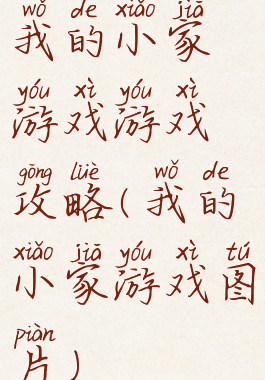 wǒ de xiǎo jiā
我的小家
yóu xì yóu xì
游戏游戏
gōng lüè wǒ de
攻略(我的
xiǎo jiā yóu xì tú
小家游戏图
piàn
片)